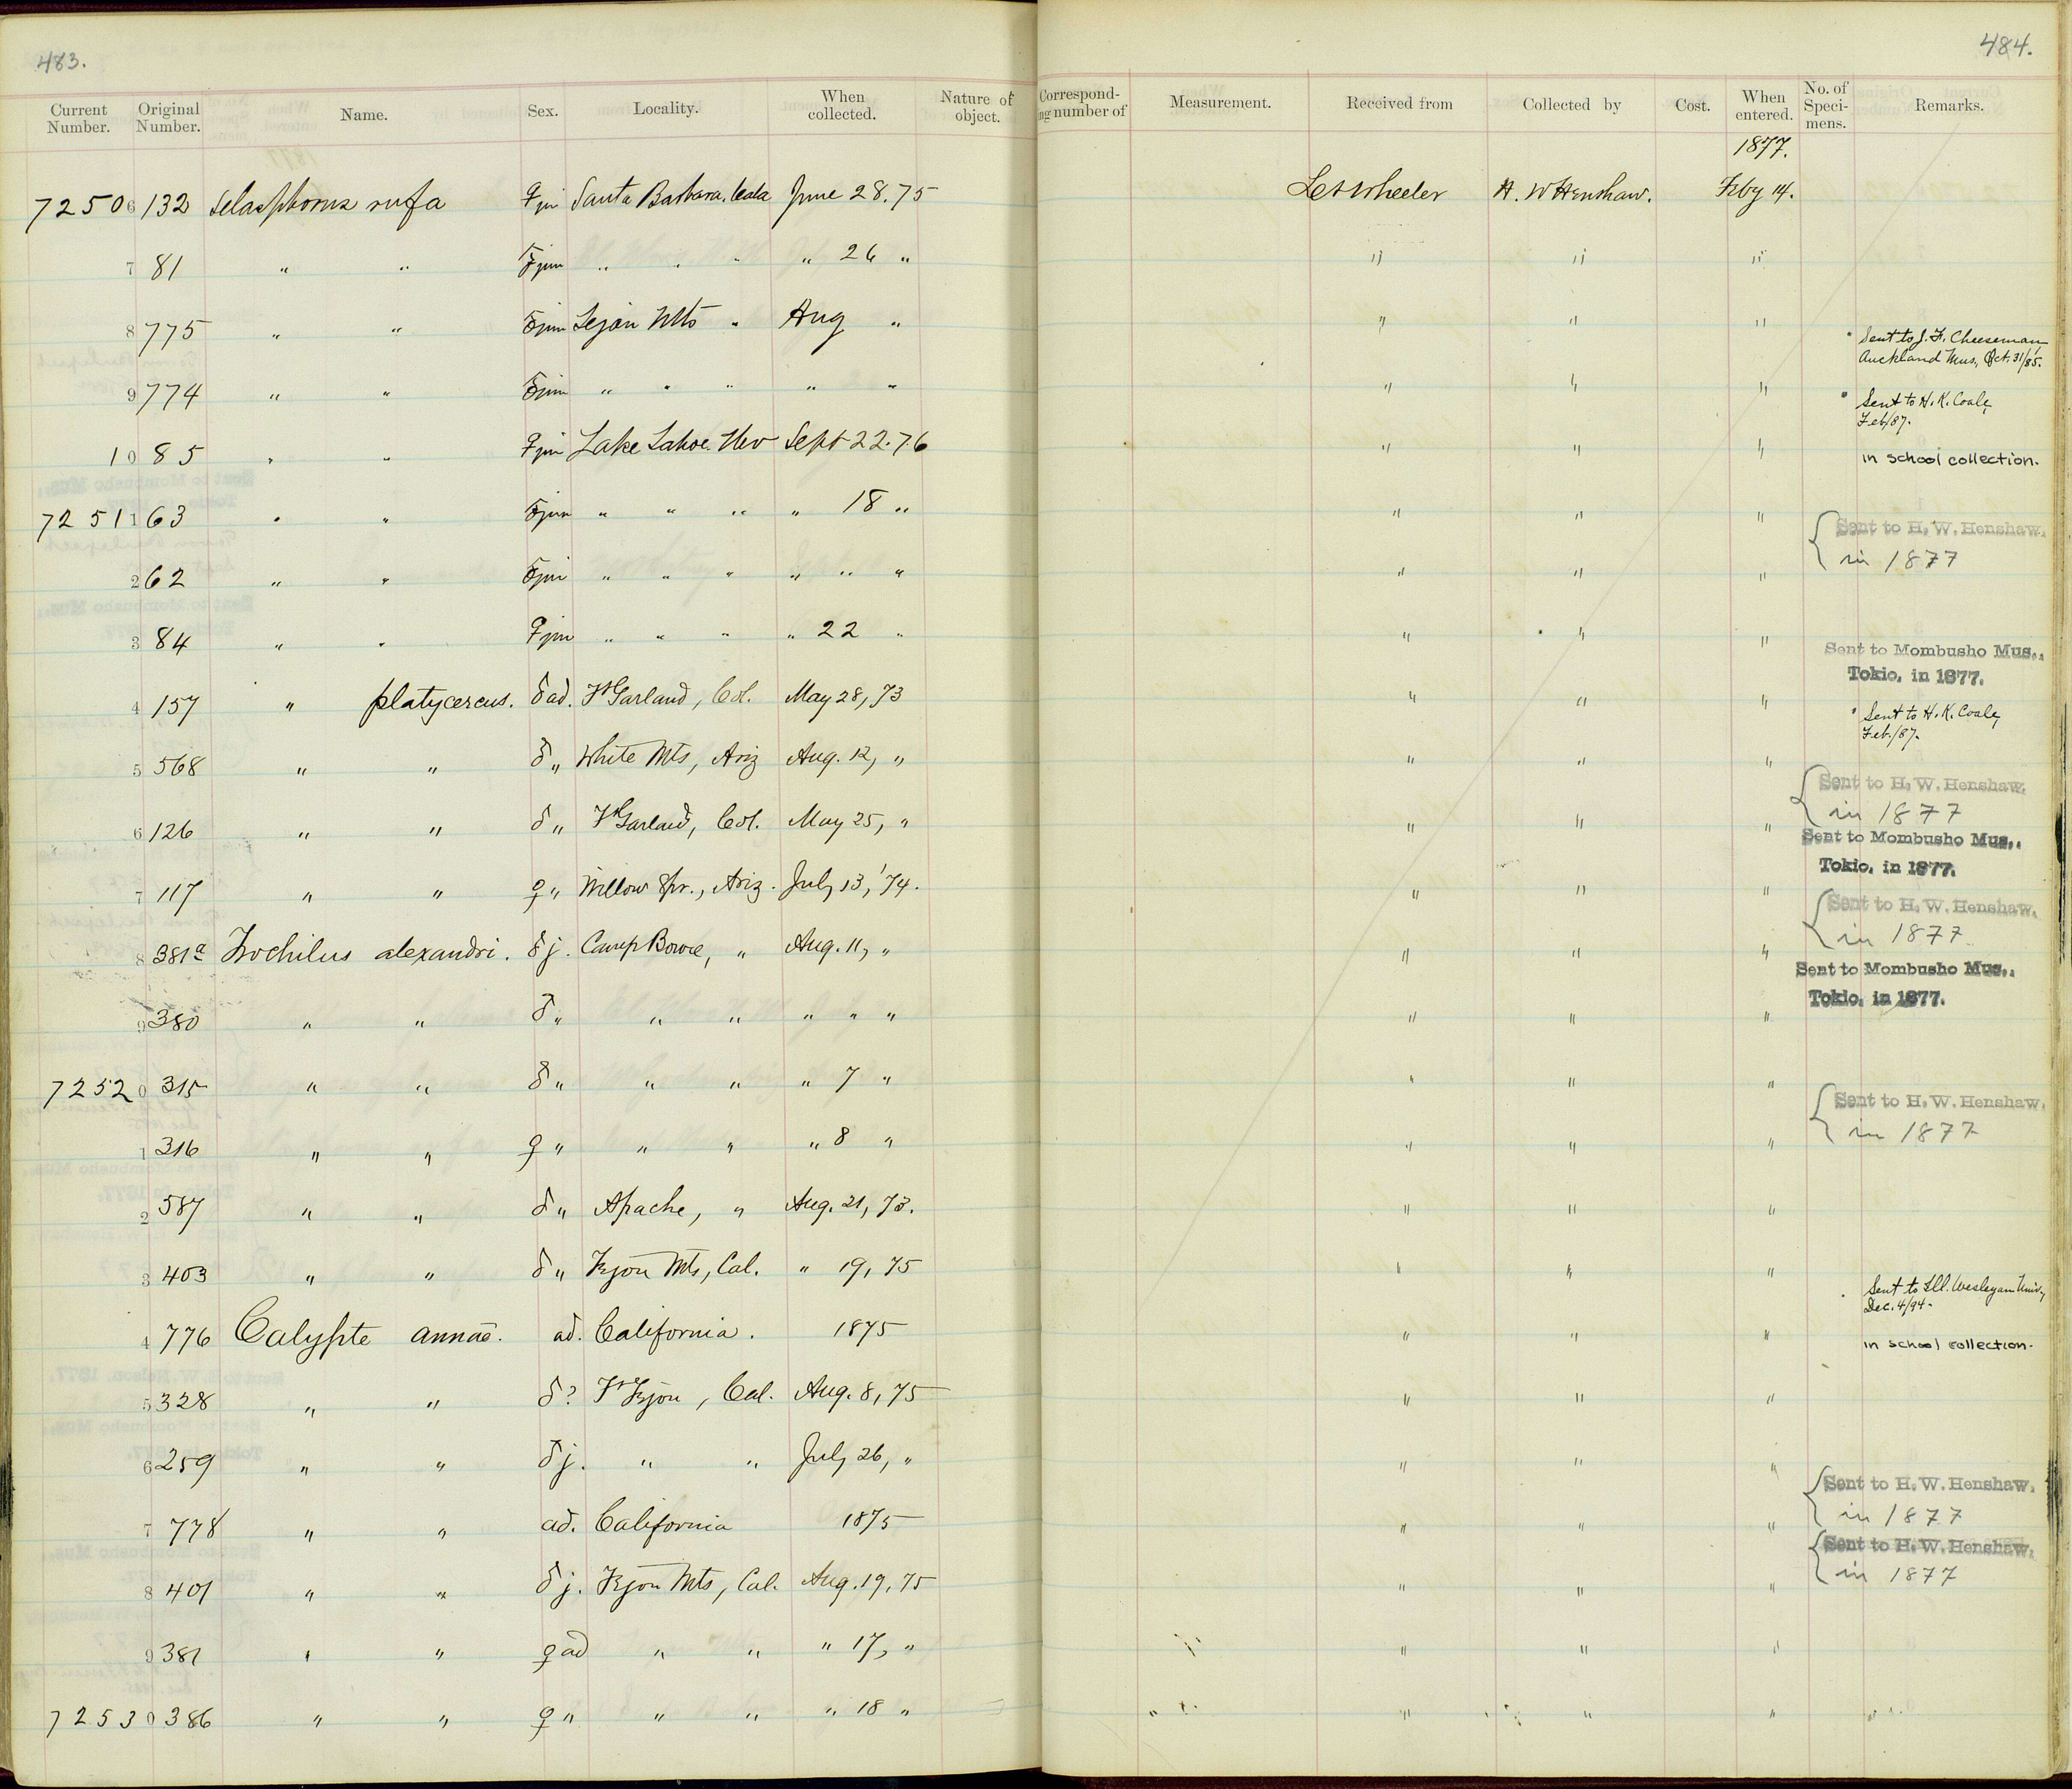 483.
484.
Current Number. Original Number. Name. Sex. Locality. When collected. Nature of object. Correspond-ing number of Measurement. Received from Collected by Cost. When entered. No. of Speci-mens. Remarks.
1877.
72506 132 Selasphorus rufa ♀ juv Santa Barbara, Cala June 28. 75 Lt Wheeler H. W Henshaw. Feby 14.
7 81 " " ♂ juv " " " " 26 " " " "
8 775 " " ♂ juv Tejon Mts " Aug " " " " Sent to J. F. Cheeseman Auckland Mus, Oct. 31/85.
9 774 " " ♂ juv " " " " " " " " Sent to H. K. Coale, Feb/87.
10 85 " " ♀ juv Lake Tahoe. Nev Sept 22. 76 " " " in school collection.
72511 63 " " ♂ juv " " " " 18 " " " " Sent to H. W. Henshaw. in 1877
2 62 " " ♂ juv " " " " " " " " "
3 84 " " ♀ juv " " " " 22 " " " " Sent to Mombusho Mus., Tokio, in 1877.
4 157 " platycercus. ♂ ad. Ft Garland, Col. May 28, 73 " " " Sent to H. K. Coale, Feb./87.
5 568 " " ♂ " White Mts, Ariz Aug. 12, " " " " Sent to H. W. Henshaw. in 1877
6 126 " " ♂ " Ft Garland, Col. May 25, " " " " Sent to Mombusho Mus., Tokio, in 1877.
7 117 " " ♀ " Willow Spr., Ariz. July 13, '74. " " " Sent to H. W. Henshaw. in 1877
8 381a Trochilus alexandri. ♂ j. Camp Bowie, " Aug. 11, " " " " Sent to Mombusho Mus., Tokio, in 1877.
9 380 " " ♂ " " " " " " " " "
72520 315 " " ♂ " " " " 7 " " " " Sent to H. W. Henshaw. in 1877
1 316 " " ♀ " " " " 8 " " " "
2 587 " " ♂ " Apache, " Aug. 21, 73. " " "
3 403 " " ♂ " Tejon Mts, Cal. " 19, 75 " " " Sent to Ill. Wesleyan Univ., Dec. 4/94.
4 776 Calypte annae. ad. California. 1875 " " " in school collection.
5 328 " " ♂? Ft Tejon, Cal. Aug. 8, 75 " " "
6 259 " " ♂ j. " " July 26, " " " " Sent to H. W. Henshaw. in 1877
7 778 " " ad. California 1875 " " " Sent to H. W. Henshaw. in 1877
8 401 " " ♂ j. Tejon Mts, Cal. Aug. 19, 75 " " "
9 381 " " ♀ ad " " " 17, " " " "
72530 386 " " ♀ " " " " 18 " " " "